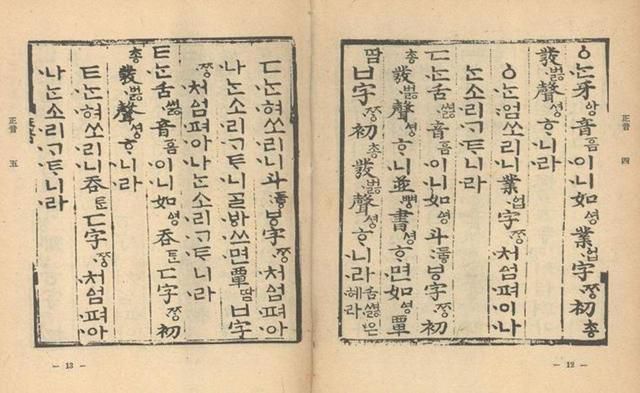 正音 四
ㆁᄂᆞᆫ牙ᅌᅡᆼ音ᅙᅳᆷ이니如ᅀᅧᆼ業ᅌᅥᆸ字ᄍᆞᆼ初총
發벓聲셩ᄒᆞ니라
ㆁᄂᆞᆫ엄쏘리니業ᅌᅥᆸ字ᄍᆞᆼ처ᅀᅥᆷ펴아나
ᄂᆞᆫ소리ᄀᆞᄐᆞ니라
ㄷᄂᆞᆫ舌쎯音ᅙᅳᆷ이니如ᅀᅧᆼ斗듀ᇢㅂ字ᄍᆞᆼ初
총發벓聲셩ᄒᆞ니並뼝書셩ᄒᆞ면如ᅀᅧᆼ覃
땀ㅂ字ᄍᆞᆼ初총發벓聲셩ᄒᆞ니라舌쎯은혀라
— 12 —
正音 五
ㄷᄂᆞᆫ혀쏘리니斗듀ᇢㅂ字ᄍᆞᆼ처ᅀᅥᆷ펴아
나ᄂᆞᆫ소리ᄀᆞᄐᆞ니ᄀᆞᆯᄫᅡ쓰면覃땀ㅂ字
ᄍᆞᆼ처ᅀᅥᆷ펴아나ᄂᆞᆫ소리ᄀᆞᄐᆞ니라
ㅌᄂᆞᆫ舌쎯音ᅙᅳᆷ이니如ᅀᅧᆼ呑ᄐᆞᆫㄷ字ᄍᆞᆼ初
총發벓聲셩ᄒᆞ니라
ㅌᄂᆞᆫ혀쏘리니呑ᄐᆞᆫㄷ字ᄍᆞᆼ처ᅀᅥᆷ펴아
나ᄂᆞᆫ소리ᄀᆞᄐᆞ니라
— 13 —